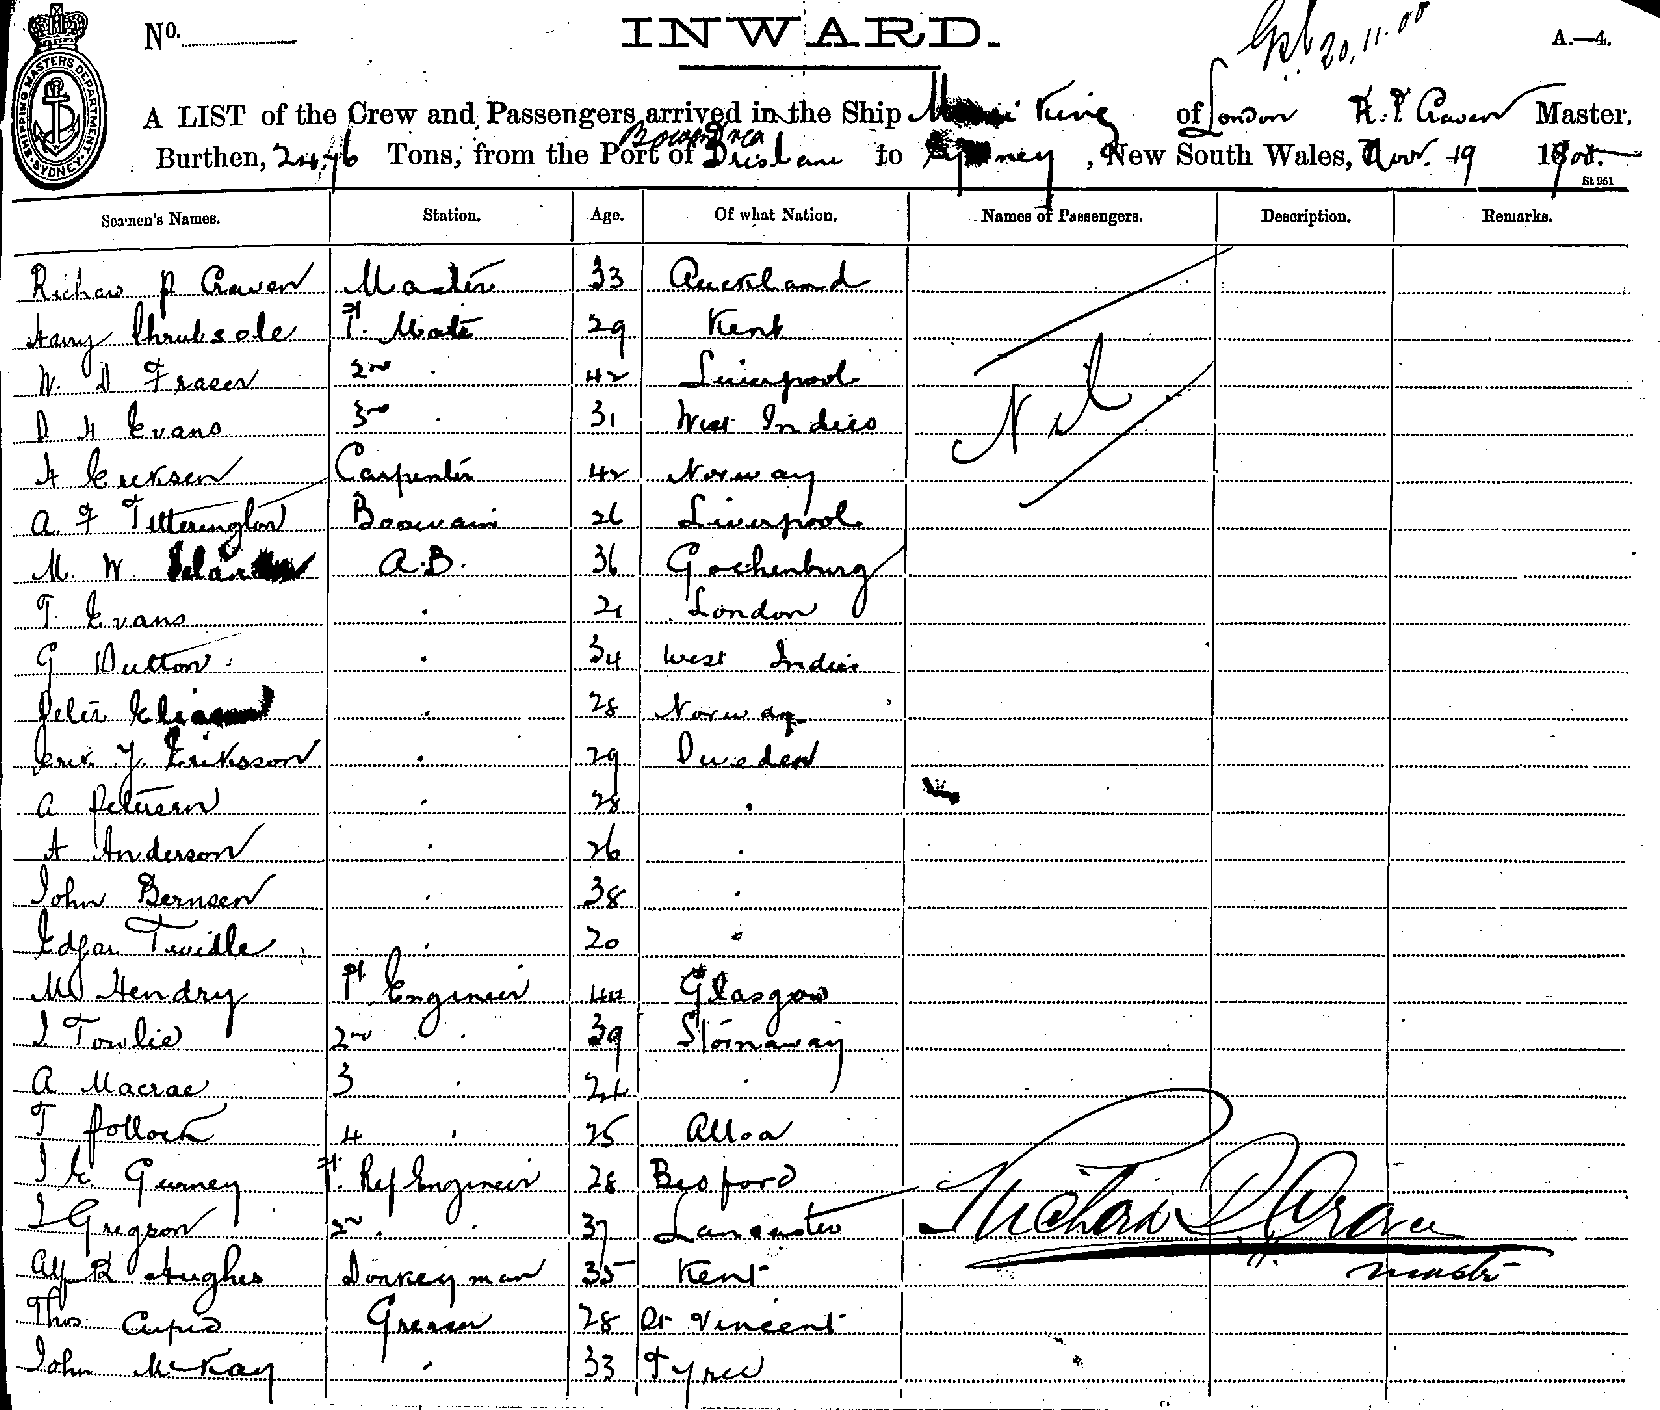 No.
INWARD.
20.11.00
A.—4.
SHIPPING MASTERS DEPARTMENT SYDNEY
A LIST of the Crew and Passengers arrived in the Ship King of London R. P. Craven Master,
Burthen, 2476 Tons, from the Port of Brisbane to Sydney, New South Wales, Nov. 19 1900.
St 961
Seamen's Names. Station. Age. Of what Nation. Names of Passengers. Description. Remarks.
Richard P Craven Master 33 Auckland
Harry Shrubsole 1st Mate 29 Kent
W. D Fraser 2nd " 42 Liverpool
D H Evans 3rd " 31 West Indies
Nil
A Ericksen Carpenter 42 Norway
A. F Titterington Boswain 26 Liverpool
M. W. A.B. 36 Gothenburg
T. Evans " 21 London
G Dutton " 34 West Indies
Peter " 28 Norway
Eric J. Eriksson " 29 Sweden
A Petersen " 28 "
A Anderson " 26 "
John Bernsen " 38 "
Edgar Twidle " 20 "
M Hendry 1st Engineer 40 Glasgow
J Towlie 2nd " 39 Stornaway
A Macrae 3 " 24 "
T Pollock 4 " 25 Alloa
J E Gurney 1st. Ref Engineer 28
J Gregson 2nd " 37 Lancaster
Richard P Craven
Alf R Hughes Donkeyman 35 Kent
Master
Thos Cupid Greaser 28 St Vincent
John McKay " 33 Tyree